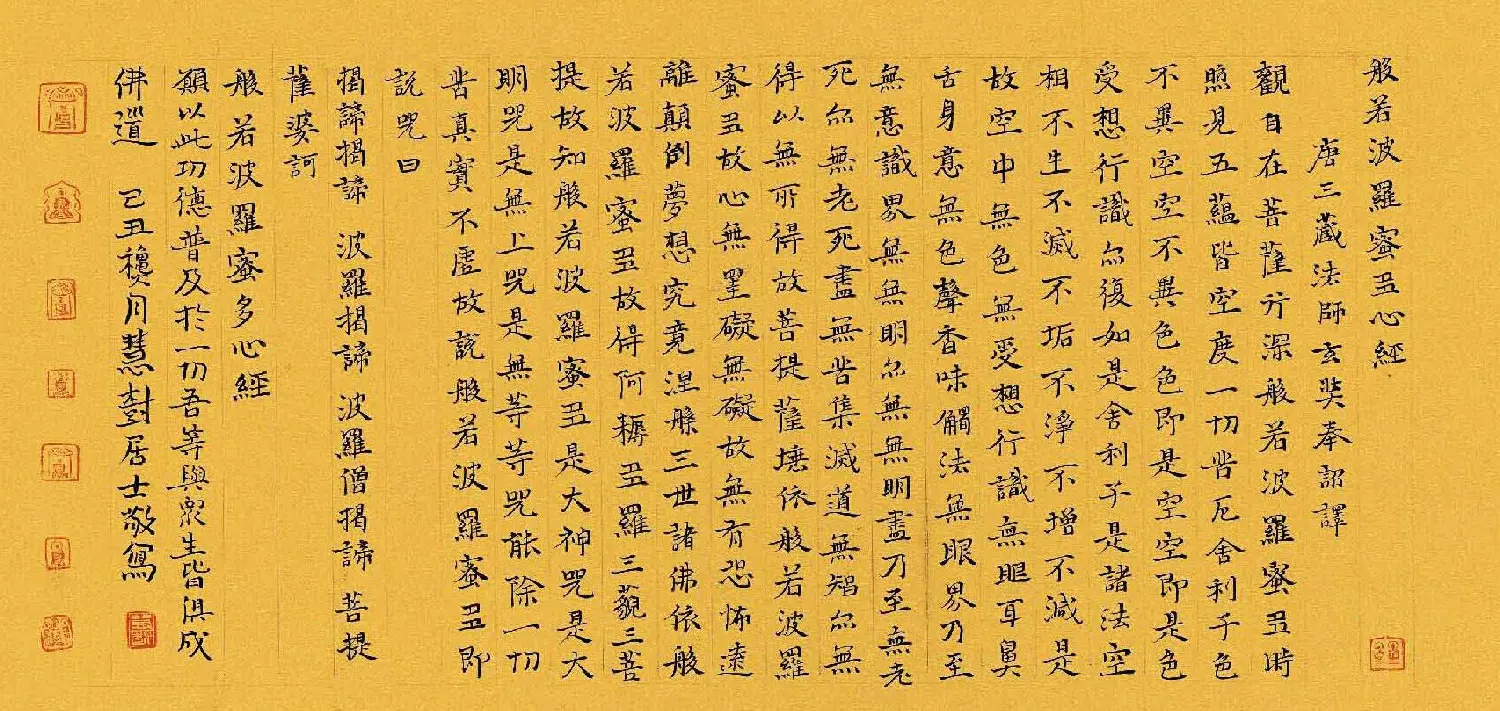 般若波羅蜜多心經
唐三藏法師玄奘奉詔譯
觀自在菩薩行深般若波羅蜜多時
照見五蘊皆空度一切苦厄舍利子色
不異空空不異色色即是空空即是色
受想行識亦復如是舍利子是諸法空
相不生不滅不垢不淨不增不減是
故空中無色無受想行識無眼耳鼻
舌身意無色聲香味觸法無眼界乃至
無意識界無無明亦無無明盡乃至無老
死亦無老死盡無苦集滅道無智亦無
得以無所得故菩提薩埵依般若波羅
蜜多故心無罣礙無礙故無有恐怖遠
離顛倒夢想究竟涅槃三世諸佛依般
若波羅蜜多故得阿耨多羅三藐三菩
提故知般若波羅蜜多是大神咒是大
明咒是無上咒是無等等咒能除一切
苦真實不虛故說般若波羅蜜多即
說咒曰
揭諦揭諦 波羅揭諦 波羅僧揭諦 菩提
薩婆訶
般若波羅蜜多心經
願以此功德普及於一切吾等與眾生皆俱成
佛道 己丑穫月慧居士敬寫